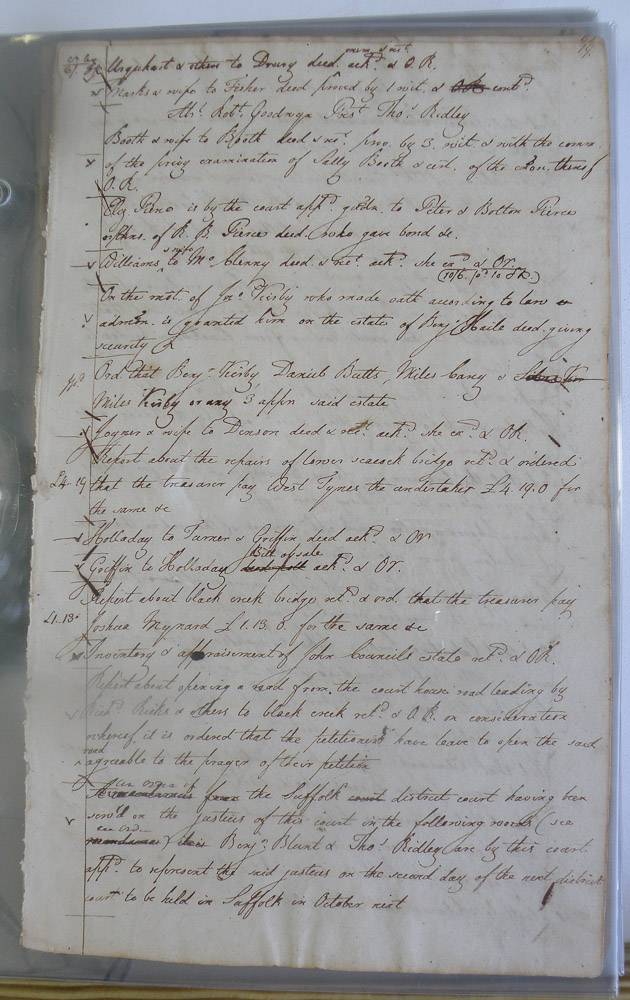 mem. & rect.
Urquhart & others to Drury deed ackd. & O R.
Marks & wife to Fisher deed proved by 1 wit. & O R contd.
Robt. Goodwyn Thos. Ridley
Booth & wife to Booth deed & rect. prov. by 3 wit. & with the comn.
of the privy examination of Sally Booth & cert. of the exon. thereof
O. R.
is by the court appd. guardn. to Peter & Bolton Pierce
orphns. of R. B. Pierce deed. who gave bond &c.
Williams & wife to Mc. Clenny deed & rect. ackd. she exd. & OR.
On the mot. of Jno. Kirby who made oath according to law
admon. is granted him on the estates of Benj. Haile deed. giving
security
Ord. that Benj. Kirby Daniel Butts, Miles Cary &
Miles Kirby or any 3 appr. said estate
Joyner & wife to Denson deed & rect. ackd. she exd. & OR.
Report about the repairs of lower seacock bridge retd. & ordered
£4.19 that the treasurer pay West Tynes the undertaker £4.19.0 for
the same &c
Holladay to Turner & Griffin deed ackd. & OR
Bill of sale
Griffin to Holladay deed poll ackd. & Or.
Report about black creek bridge retd. & ord. that the treasurer pay
£1.13. Joshua Mynard £1.13.8 for the same &c
Inventory & appraisement of John Councils estate retd. & O R.
Report about opening a road from the court house road leading by
Richd. Ricks & others to black creek retd. & O. R. on consideration
whereof it is ordered that the petitioners have leave to open the said
road
agreeable to the prayer of their petition
an order of
from the Suffolk court district court having been
serv'd on the justices of this court in the following words (see
mandamus) this Benj. Blunt & Thos. Ridley are by this court
appd. to represent the said justices on the second day of the next district
court to be held in Suffolk in October next